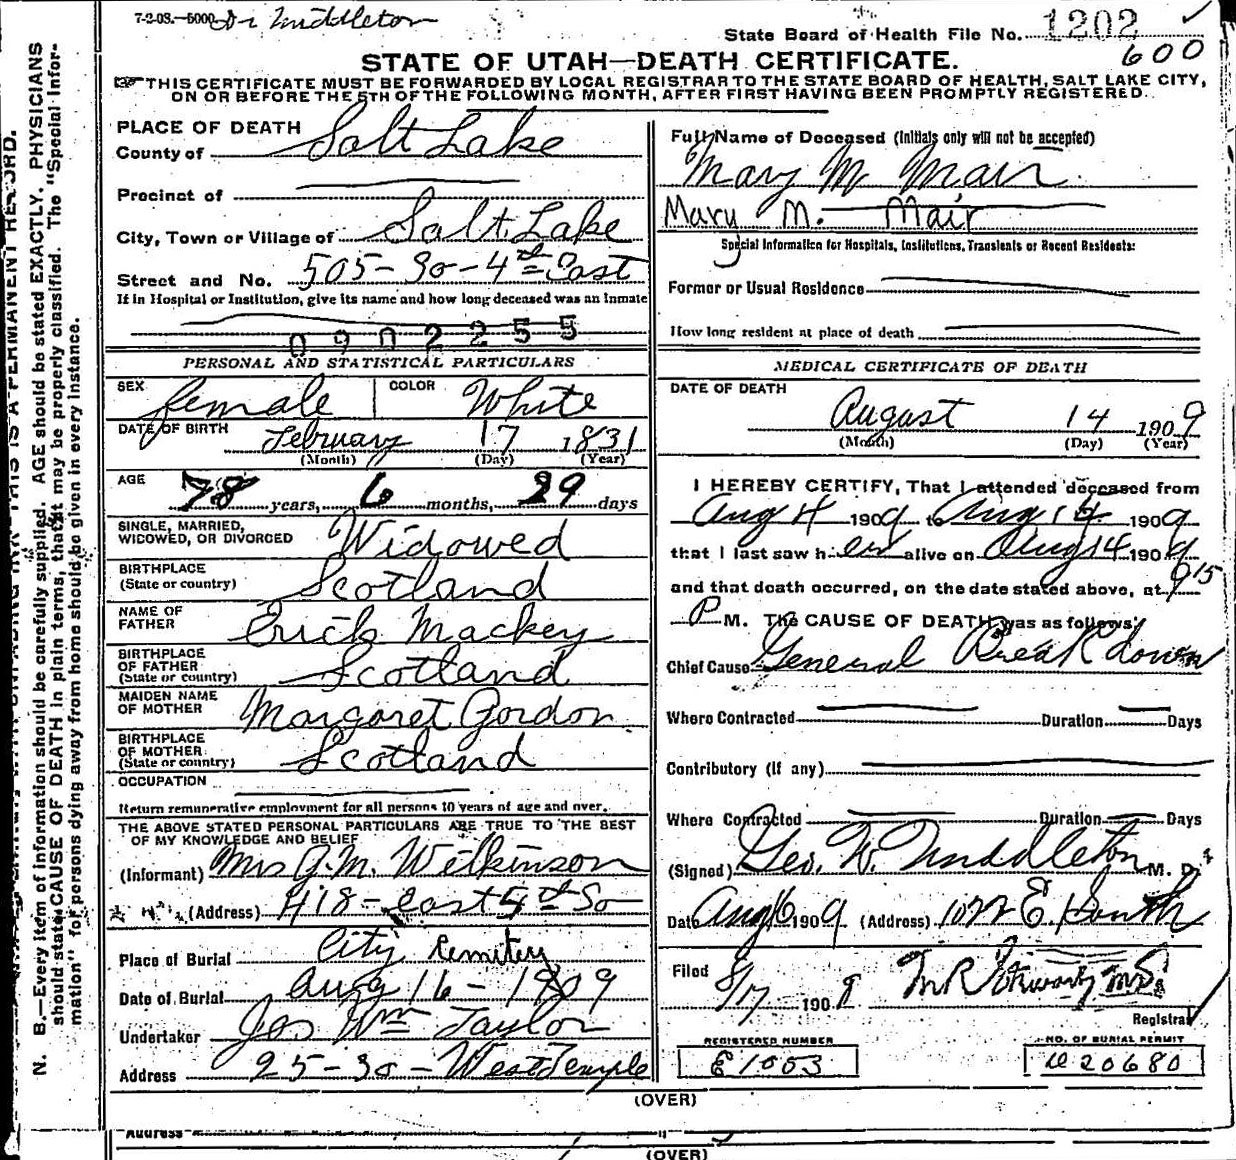 7-2-08.—5000 Dr Middleton
State Board of Health File No. 1202
600
STATE OF UTAH—DEATH CERTIFICATE.
THIS CERTIFICATE MUST BE FORWARDED BY LOCAL REGISTRAR TO THE STATE BOARD OF HEALTH, SALT LAKE CITY,
ON OR BEFORE THE 5TH OF THE FOLLOWING MONTH, AFTER FIRST HAVING BEEN PROMPTLY REGISTERED.
PLACE OF DEATH
County of Salt Lake
Precinct of
City, Town or Village of Salt Lake
Street and No. 505-So-4th East
If in Hospital or Institution, give its name and how long deceased was an Inmate
0902255
PERSONAL AND STATISTICAL PARTICULARS
SEX female COLOR White
DATE OF BIRTH February 17 1831
(Month) (Day) (Year)
AGE 78 years, 6 months, 29 days
SINGLE, MARRIED,
WIDOWED, OR DIVORCED Widowed
BIRTHPLACE
(State or country) Scotland
NAME OF
FATHER Erick Mackey
BIRTHPLACE
OF FATHER
(State or country) Scotland
MAIDEN NAME
OF MOTHER Margaret Gordon
BIRTHPLACE
OF MOTHER
(State or country) Scotland
OCCUPATION
Return remunerative employment for all persons 10 years of age and over.
THE ABOVE STATED PERSONAL PARTICULARS ARE TRUE TO THE BEST
OF MY KNOWLEDGE AND BELIEF
(Informant) Mrs J.M. Wilkinson
(Address) 418-east 5th So
Place of Burial City Cemitery
Date of Burial Aug 16-1909
Undertaker Jos Wm Taylor
Address 25-So-West Temple
Full Name of Deceased (Initials only will not be accepted)
Mary M Mair
Mary M. Mair
Special Information for Hospitals, Institutions, Transients or Recent Residents:
Former or Usual Residence
How long resident at place of death
MEDICAL CERTIFICATE OF DEATH
DATE OF DEATH
August 14 1909
(Month) (Day) (Year)
I HEREBY CERTIFY, That I attended deceased from
Aug 4 1909 to Aug 14 1909
that I last saw her alive on Aug 14 1909
and that death occurred, on the date stated above, at 9 15
P M. The CAUSE OF DEATH was as follows:
Chief Cause General Break down
Where Contracted Duration Days
Contributory (If any)
Where Contracted Duration Days
(Signed) Geo. W. Middleton M. D.
Date Aug 16 1909 (Address)
Filed 8/17 1909
Registrar
REGISTERED NUMBER
E 1053
NO. OF BURIAL PERMIT
20680
(OVER)
Address
(OVER)
N. B.—Every item of information should be carefully supplied. AGE should be stated EXACTLY. PHYSICIANS
should state CAUSE OF DEATH in plain terms, that it may be properly classified. The "Special Infor-
mation" for persons dying away from home should be given in every instance.
THIS IS A PERMANENT RECORD.